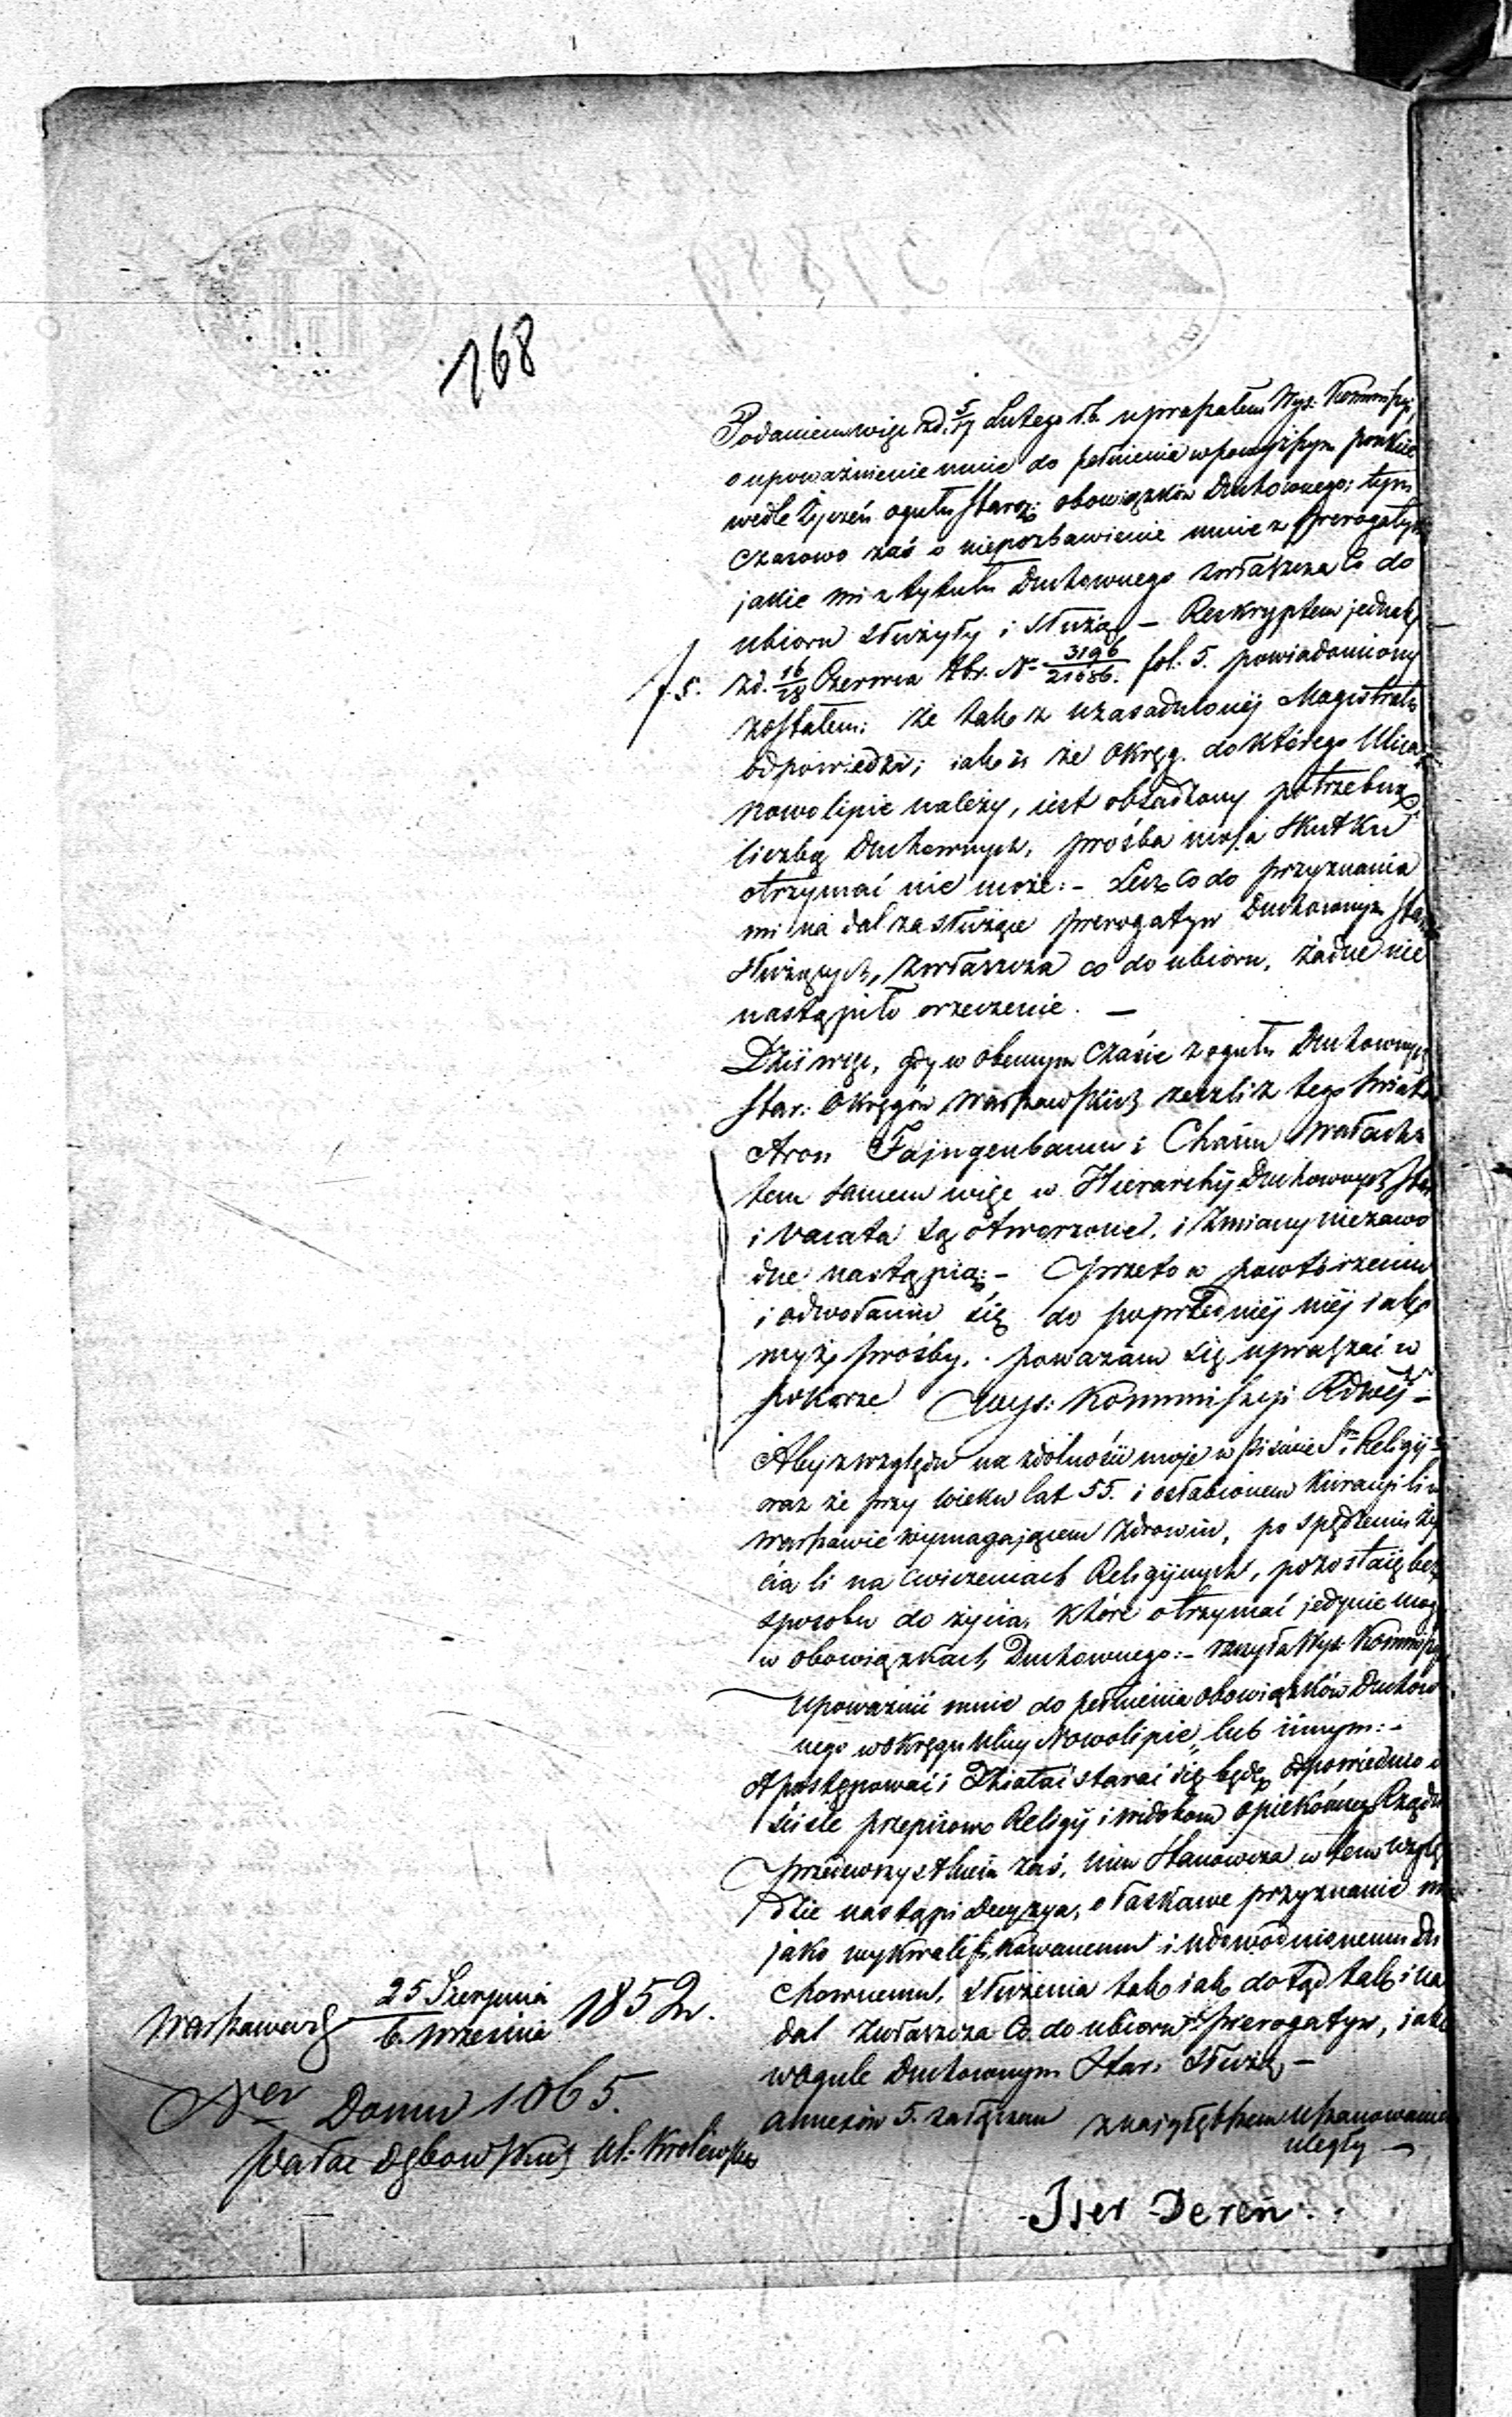 168
Podaniem więc z d. 5/17 Lutego r.b. upraszałem Wys: Kommissyi,
o upoważnienie mnie do pełnienia w powyższym punkcie
wedle życzeń ogułu Staroz: obowiązków Duchownego; tym
czasowo zaś o niepozbawienie mnie z prerogatyw
jakie mi z tytułu Duchownego zwłaszcza co do
ubioru służyły i służą – Reskryptem jednak
f. 5. z d. 16/28 Czerwca tbr. N- 3196/21086. fol: 5. powiadomiony
zostałem; że tak z uzasadnionéj Magistratu
odpowiedzi; jak iż że Okręg. do którego Ulica
Nowolipie należy, jest obsadzony potrzebną
liczbą Duchownych, prośba moja skutku
otrzymać nie może: – Lecz co do przyznania
mi na dal za służące prerogatyw Duchownym Star
służących, zwłaszcza co do ubioru, żadne nie
nastąpiło orzeczenie. –
Dziś więc, gdy w obecnym czasie z ogułu Duchownych
Star: Okręgów Warszawskich zeszli z tego świata
Aron Fajngenbaum i Chaim
tem samem więc w Hierarchij Duchownych Star
i vacata są otworzone, i zmiany niezawo
dne nastąpią: – Przeto w powtórzeniu
i odwołaniu się do poprzedniéj méj jak
wyż prośby, poważam się upraszać w
pokorze Wys: Kommissyi Rdwéj –
Aby z względu na zdolności moje w piśmie Sm i Religij –
oraz że przy wieku lat 55. i osłabionem kuracyi li w
Warszawie wymagającem zdrowiu, po spędzeniu ży
cia li na ćwiczeniach Religijnych, pozostaję bez
sposobu do życia, które otrzymać jedynie mogę
w obowiązkach Duchownego: – raczyła Wys: Kommissya
upoważnić mnie do pełnienia obowiązków Duchow
nego w okręgu Ulicy Nowolipie, lub innym: –
A postępować i działać starać się będę odpowiednio i
ściśle przepisom Religij i widokom opiekuńczego Rządu
Przedewszystkiem zaś, nim stanowcza w tem wzglę
dzie nastąpi decyzya, o łaskawe przyznanie mi
jako wykwalifikowanemu i udowodnionemu Du
chownemu, służenia tak jak dotąd tak i na
dal zwłaszcza co do ubioru prerogatyw, jako
w ogule Duchownym Star: służą –
annexów 5. załączam z najgłębszem uszanowaniem
uległy –
Iser Dereń.
Warszawa d 25 Sierpnia/6. Września 1852 r.
Ner Domu 1065.
Pałac Dębowskich Ul: Królewska